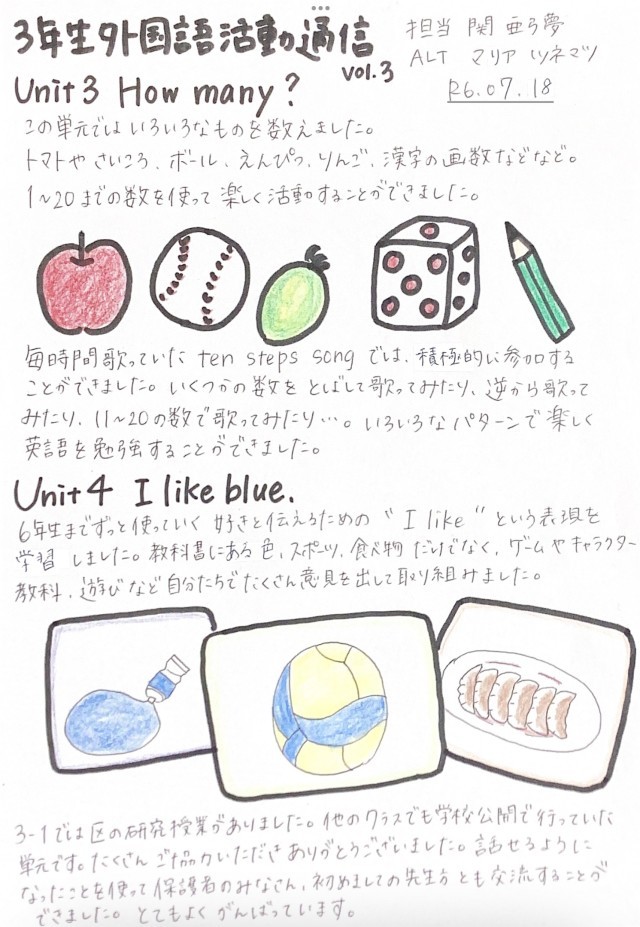 3年生外国語活動通信
vol.3
担当 関 亜弓夢
ALT マリア ツネマツ
R6.07.18
Unit 3 How many?
この単元ではいろいろなものを数えました。
トマトや さいころ、ボール、えんぴつ、りんご、漢字の画数などなど。
1~20までの数を使って楽しく活動することができました。
毎時間歌っていた ten steps song では、積極的に参加する
ことができました。いくつかの数をとばして歌ってみたり、逆から歌って
みたり、11~20の数で歌ってみたり…。いろいろなパターンで楽しく
英語を勉強することができました。
Unit 4 I like blue.
6年生までずっと使っていく 好きと伝えるための "I like" という表現を
学習しました。教科書にある色、スポーツ、食べ物だけでなく、ゲームやキャラクター
教科、遊びなど自分たちでたくさん意見を出して取り組みました。
3-1では区の研究授業がありました。他のクラスでも学校公開で行っていた
単元です。たくさんご協力いただきありがとうございました。話せるように
なったことを使って保護者のみなさん、初めましての先生方とも交流することが
できました。とてもよくがんばっています。